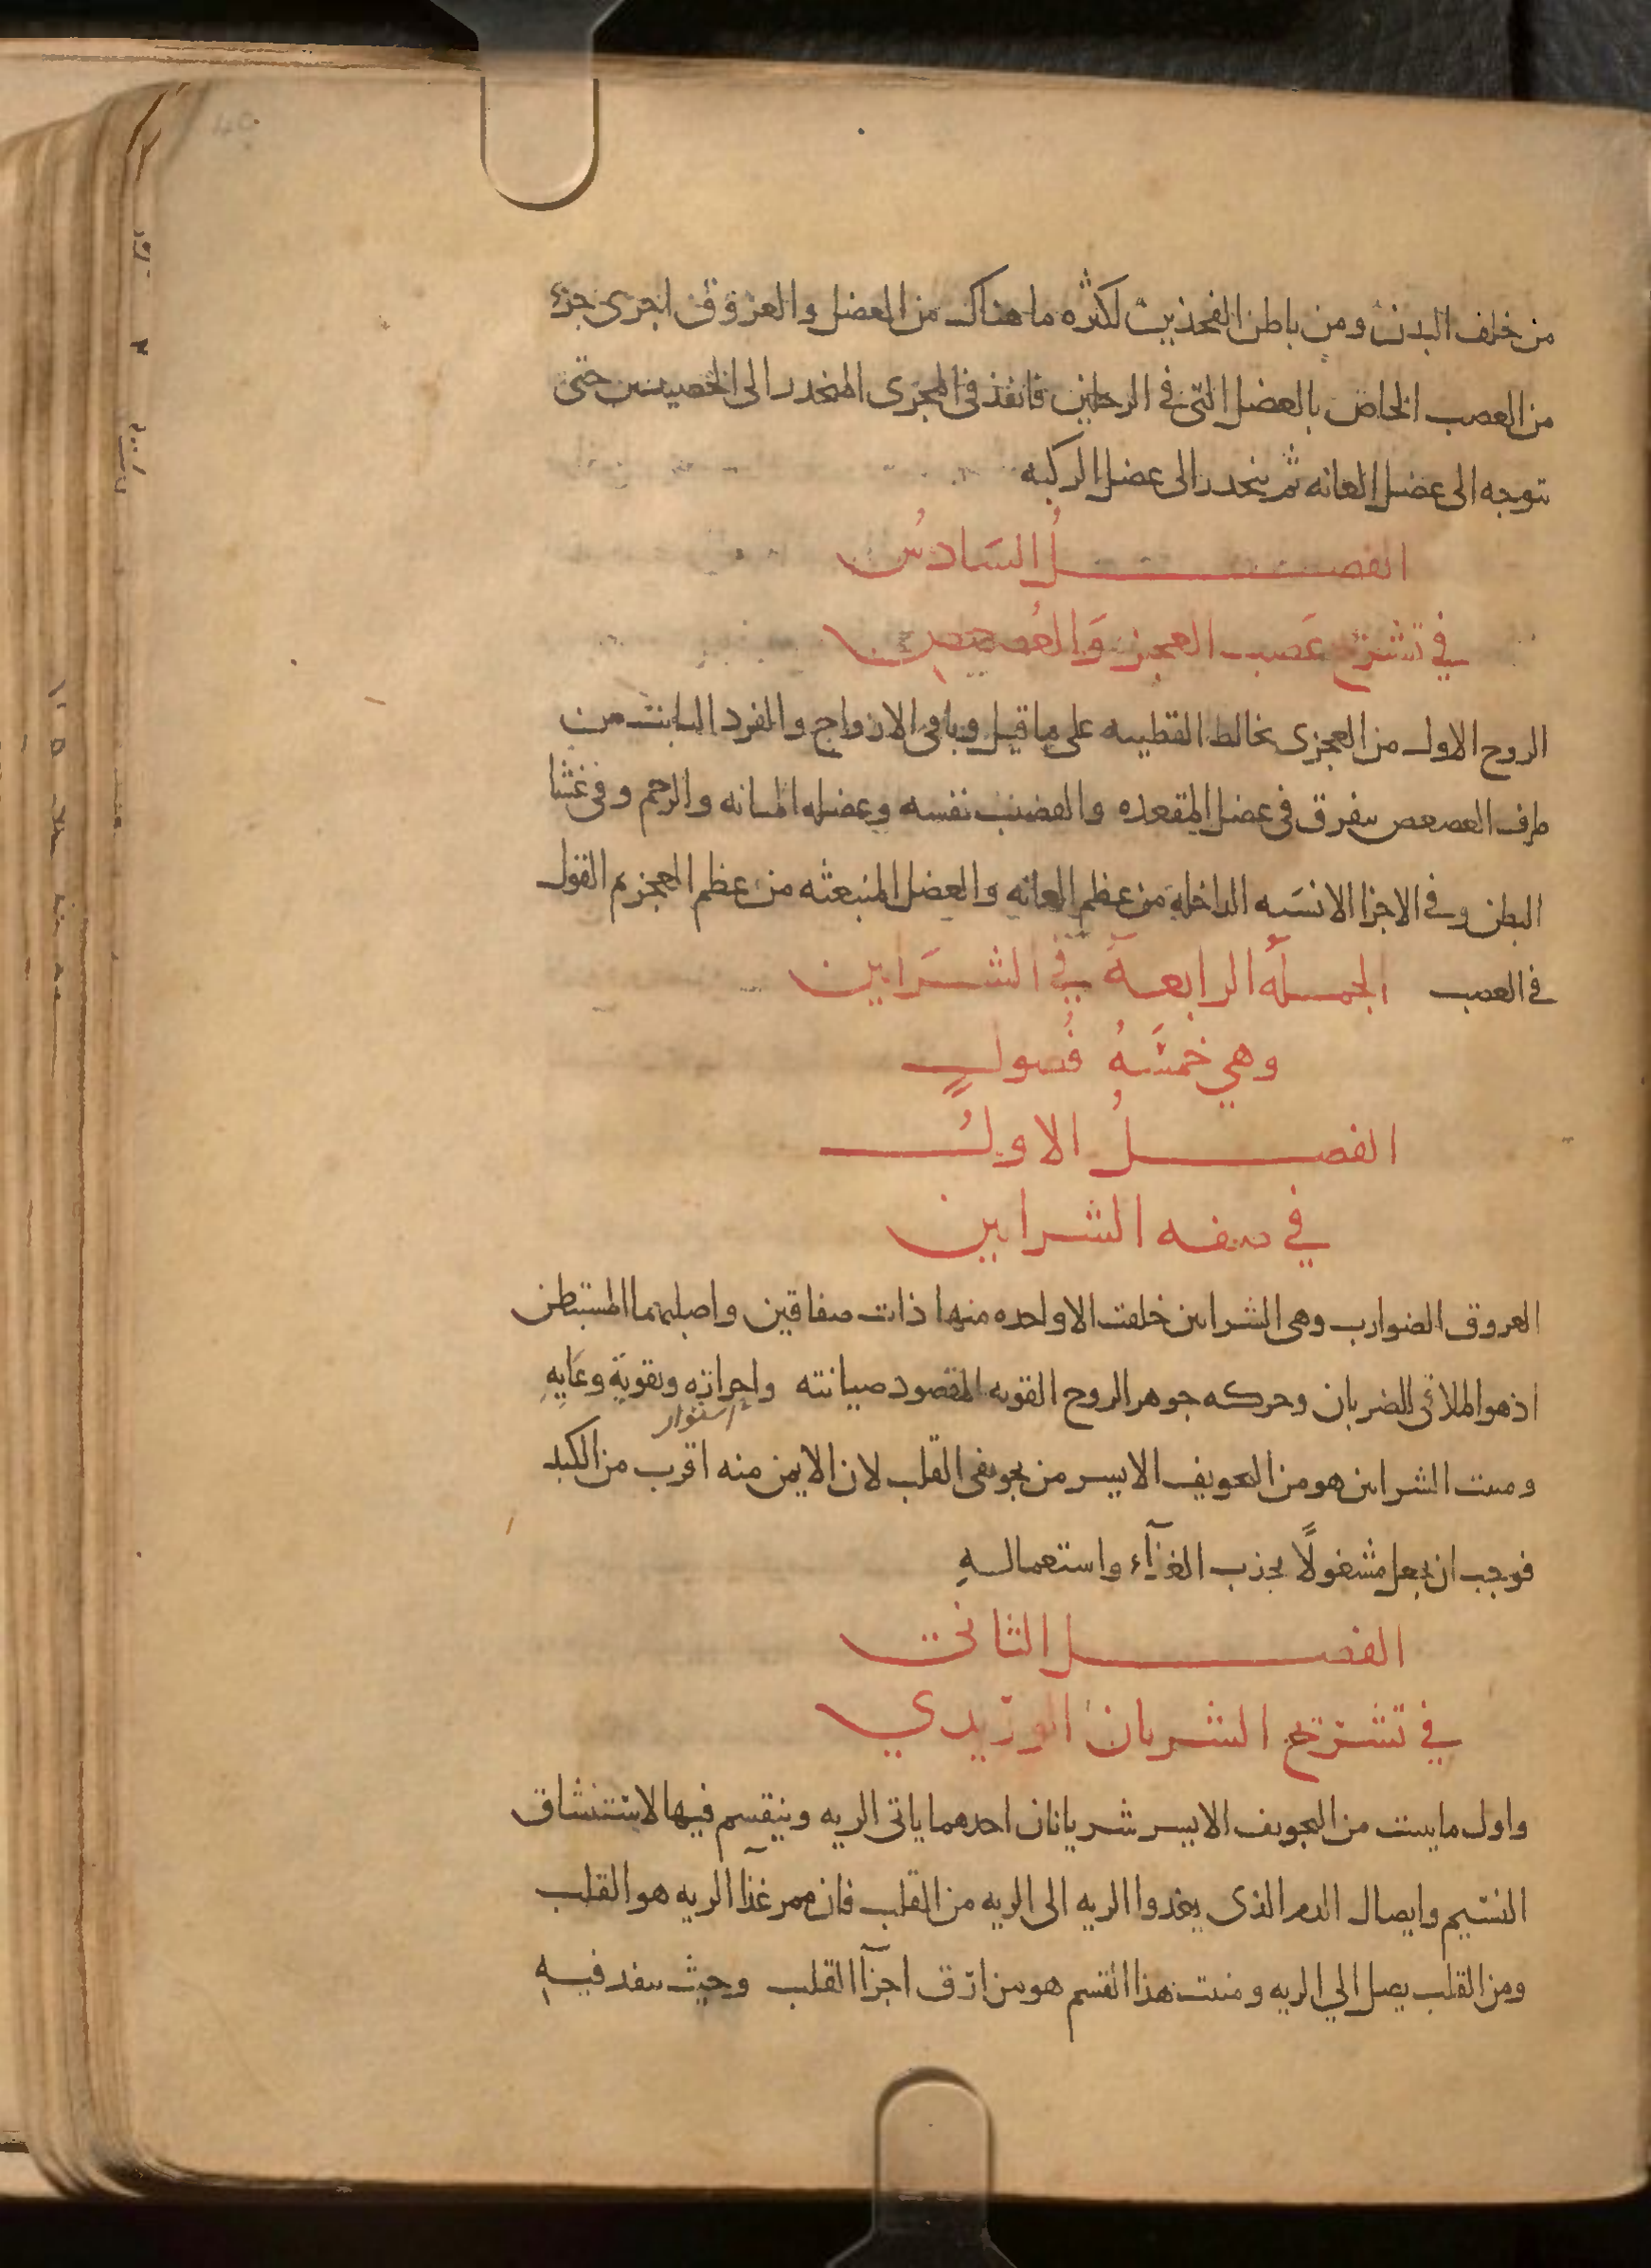 من خلف البدن ومن باطن الفخذين لكثره ما هناك من العضل والعروق اجرى جزء
من العصب الخاص بالعضل التى في الرجلين فانفذ فى المجرى المنحدر الى الخصيتين حتى
توجه الى عضل العانه ثم ينحدر الى عضل الركبه
الفصل السَادسُ
في تشريح عَصب العجز وَالعُصعص
الزوج الاول من العجزى يخالط القطنيه على ما قيل وباقى الازواج والفرد النابت من
طرف العصعص يتفرق فى عضل المقعده والقضيب نفسه وعضله المثانه والرحم وفى غشا
البطن وفي الاجزا الانسَيه الداخلة من عظم العانه والعضل المنبعثه من عظم العجز تم القول
في العصب الجملة الرابعة في الشرَايين
وهي خمسَةُ فُصولٍ
الفصلُ الاولُ
في صفه الشرايين
العروق الضوارب وهى الشرايين خلقت الا واحده منها ذات صفاقين واصلبهما المستبطن
اذ هو الملاقى للضربان وحركه جوهر الروح القويه المقصود صيانته واحرازه وتقوية وعَايِهِ
استوار
ومنبت الشرايين هو من التجويف الايسر من تجويفى القلب لان الايمن منه اقرب من الكبد
فوجب ان يجعل مشغولًا بجذب الغذآء واستعمالهِ
الفصل الثاني
في تشريح الشريان الوريدي
واول ما ينبت من التجويف الايسر شريانان احدهما ياتى الريه وينقسم فيها لاستنشاق
النسيم وايصال الدم الذى يغذوا الريه الى الريه من القلب فان ممر غذآ الريه هو القلب
ومن القلب يصل الي الريه ومنبت هذا القسم هو من ارق اجزآ القلب وحيث ينفد فيهِ